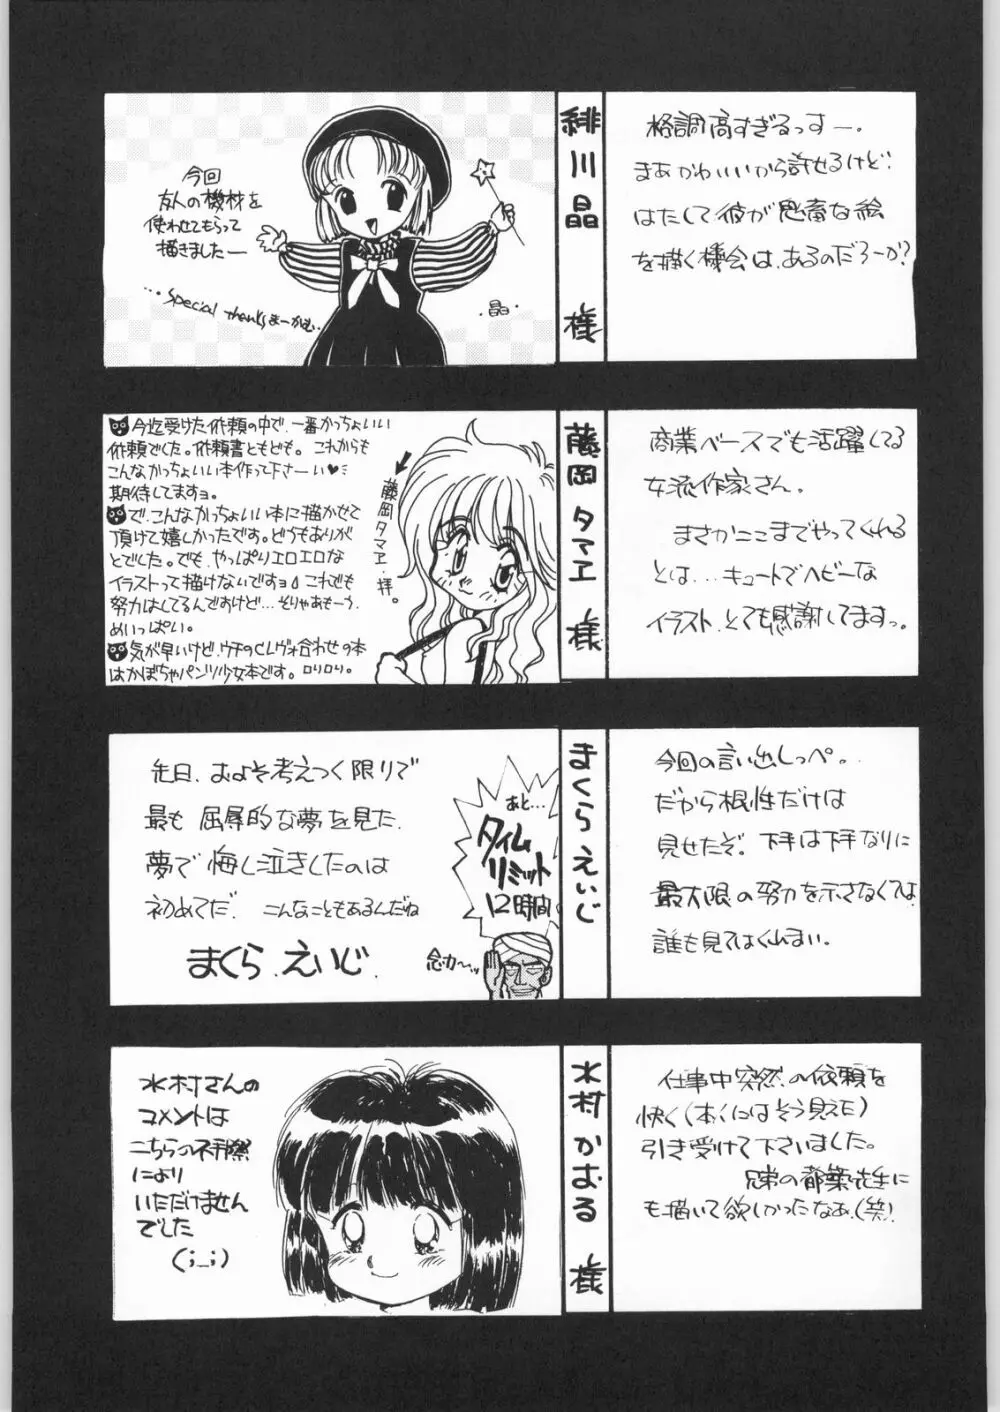 今回
友人の機材を
使わせてもらって
描きましたー
...Special thanksまーかむ.
.晶.
緋川晶 様
格調高すぎるっすー。
まあかわいいから許せるけど、
はたして彼が鬼畜な絵
を描く機会は、あるのだろーか?
今迄受けた依頼の中で、一番かっちょいい
依頼でした。依頼書ともども。これからも
こんなかっちょいい本作って下さーい♥
期待してますョ。
で、こんなかっちょいい本に描かせて
頂けて嬉しかったです。どうもありが
とでした。でも、やっぱりエロエロな
イラストって描けないですョ。これでも
努力はしてるんですけど…そりゃあもーう、
めいっぱい。
気が早いけど、ウチのCレヴォ合わせの本
はかぼちゃパンツ少女本です。ロリロリ。
藤岡タマヱ・拝。
藤岡タマヱ 様
商業ベースでも活躍してる
女流作家さん。
まさかここまでやってくれる
とは...キュートでヘビーな
イラスト、とても感謝してますっ。
先日、およそ考えつく限りで
最も 屈辱的な夢を見た.
夢で 悔し泣きしたのは
初めてだ. こんなこともあるんだね
まくら えいじ.
あと...
タイム
リミット
12時間
念力〜ッ
まくら えいじ
今回の言い出しっぺ。
だから根性だけは
見せたぞ。下手は下手なりに
最大限の努力を示さなくては
誰も見てはくれまい。
水村さんの
コメントは
こちらの不手際
により
いただけません
でした
(;_;)
水村かおる 様
仕事中突然の依頼を
快く(ホントにはそう見えた)
引き受けて下さいました。
兄弟の都築先生に
も描いて欲しかったなあ.(笑)